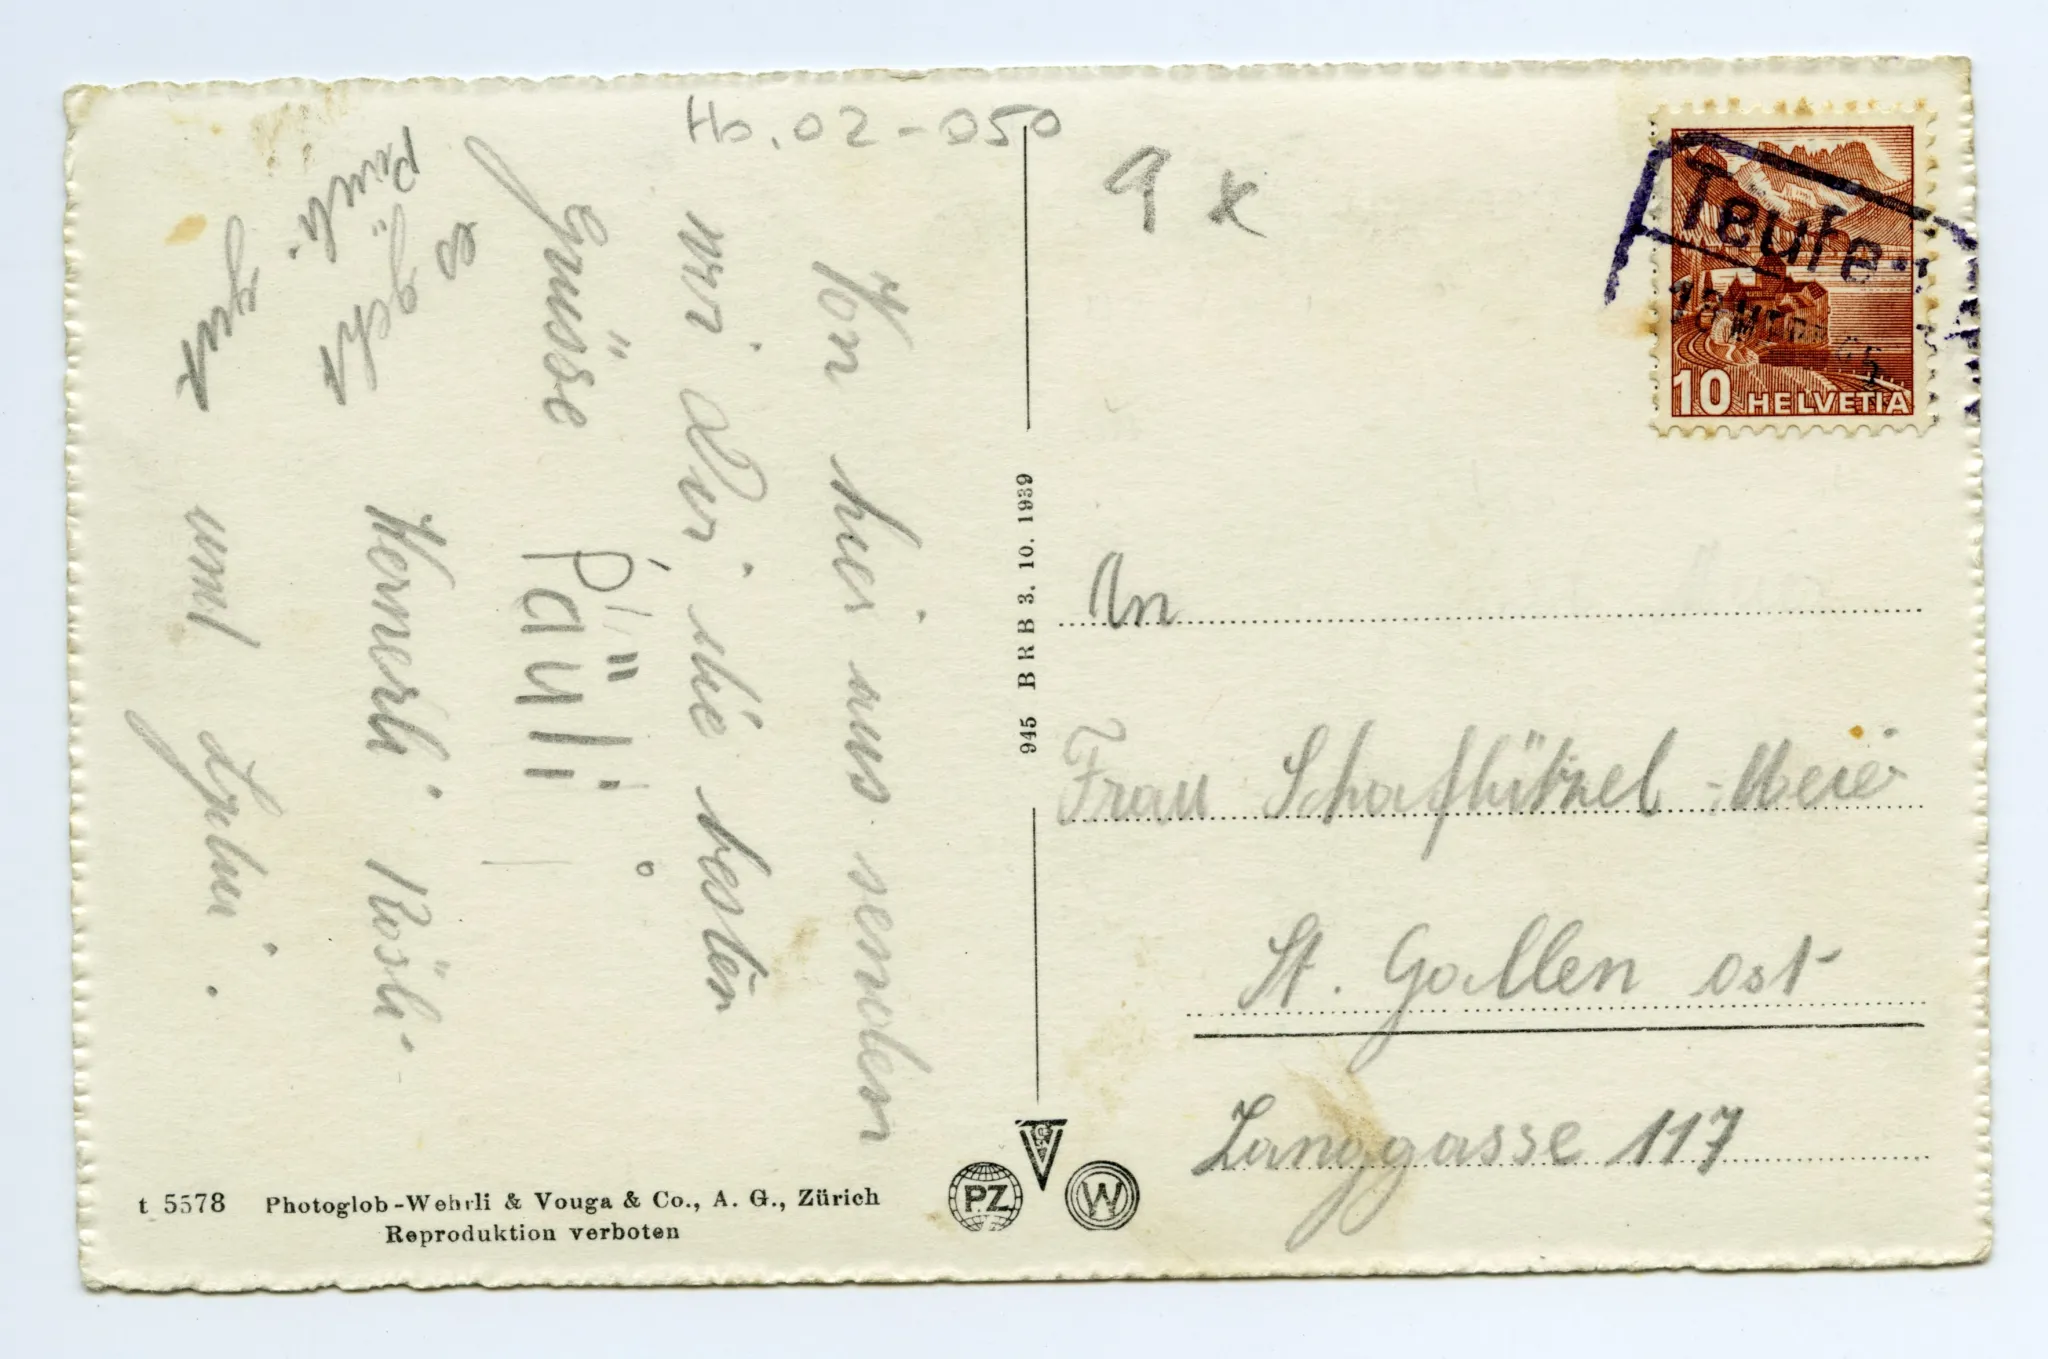 Hb. 02-050
Von hier aus senden
wir Dir die besten
Grüsse
Päuli
Wernerli Rösli
und
es geht
Päuli.
gut
9 x
Teufe
18
10 HELVETIA
945 BRB 3. 10. 1939
An
Frau Schafhützel-Meier
St. Gallen ost
Langgasse 117
PZ
W
t 5578 Photoglob-Wehrli & Vouga & Co., A. G., Zürich
Reproduktion verboten